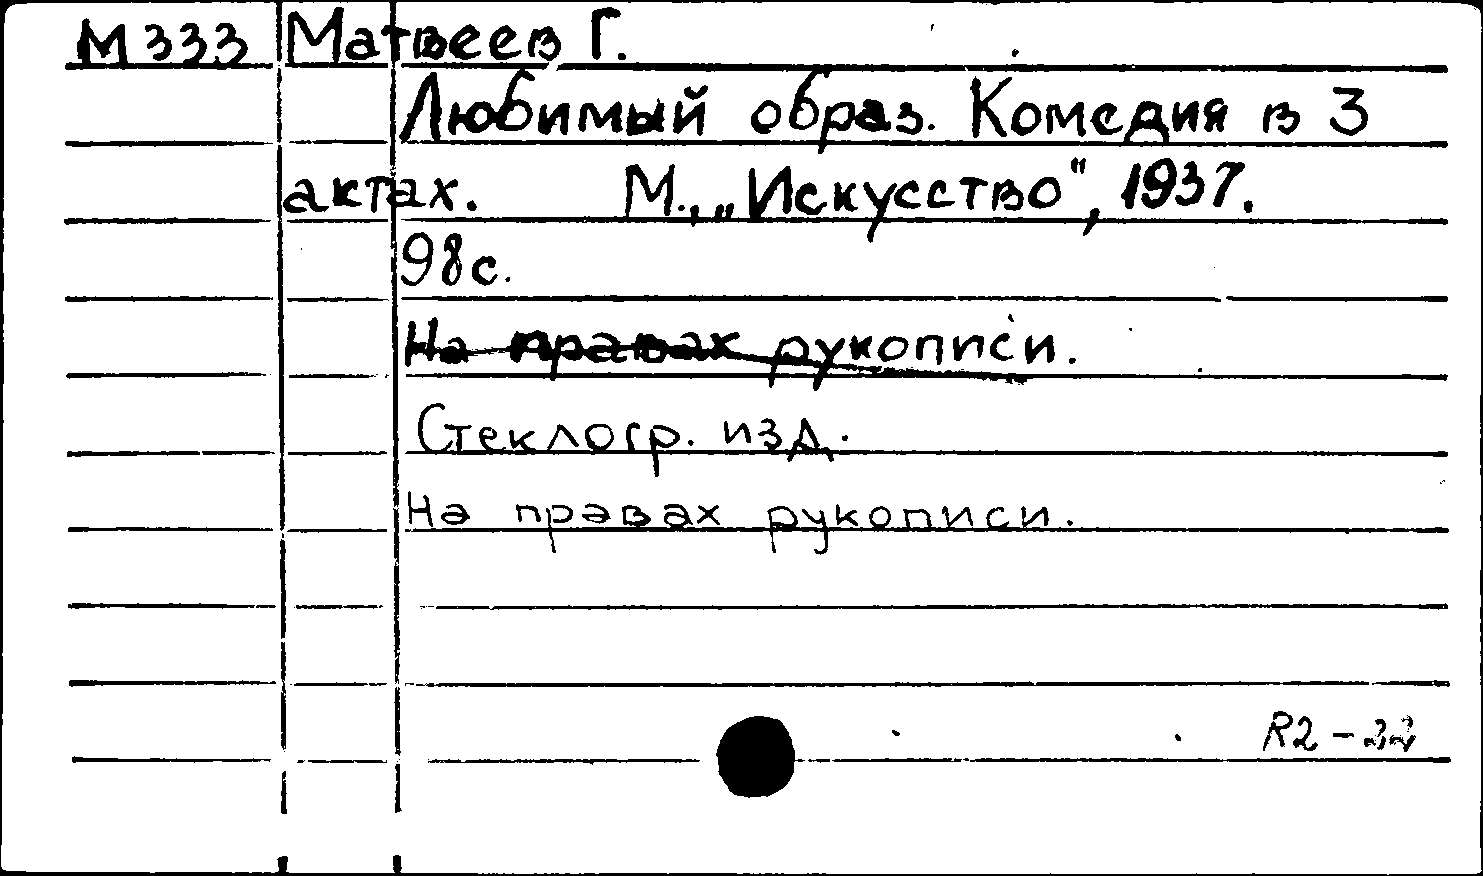 М333 Матвеев Г.
Любимый образ. Комедия в 3
актах. М., „Искусство", 1937.
98с.
На правах рукописи.
Стеклогр. изд.
На правах рукописи.
R2 -